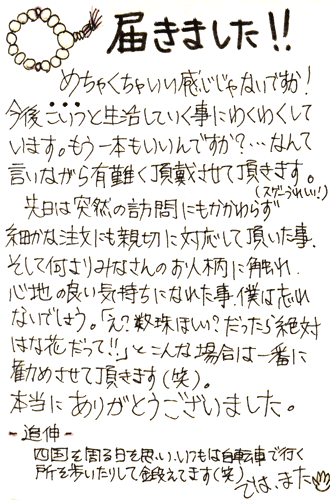 届きました!!
めちゃくちゃいい感じじゃないですか!
今後こいつと生活していく事にわくわくして
います。もう一本もいいんですか?…なんて
言いながら有難く頂戴させて頂きます。
(スゲーうれしい!)
先日は突然の訪問にもかかわらず
細かな注文にも親切に対応して頂いた事、
そして何よりみなさんのお人柄に触れ、
心地の良い気持ちになれた事、僕は忘れ
ないでしょう。「え?数珠ほしい?だったら絶対
はな花だって!!」とこんな場合は一番に
勧めさせて頂きます(笑)。
本当にありがとうございました。
-追伸-
四国を周る日を思い、いつもは自転車で行く
所を歩いたりして鍛えてます(笑)
では、また